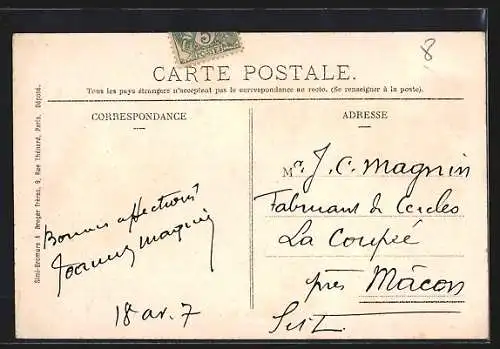 5
8
CARTE POSTALE.
Tous les pays étrangers n'acceptent pas la correspondance au recto. (Se renseigner à la poste).
CORRESPONDANCE
ADRESSE
Simi-Bromure A. Breger frères, 9, Rue Thénard, Paris. Déposé.
Mr J. C. Magnin
Fabricant de Cercles
La Coupée
près Mâcon
Bonnes affections
Joanny Magnin
18 av. 7